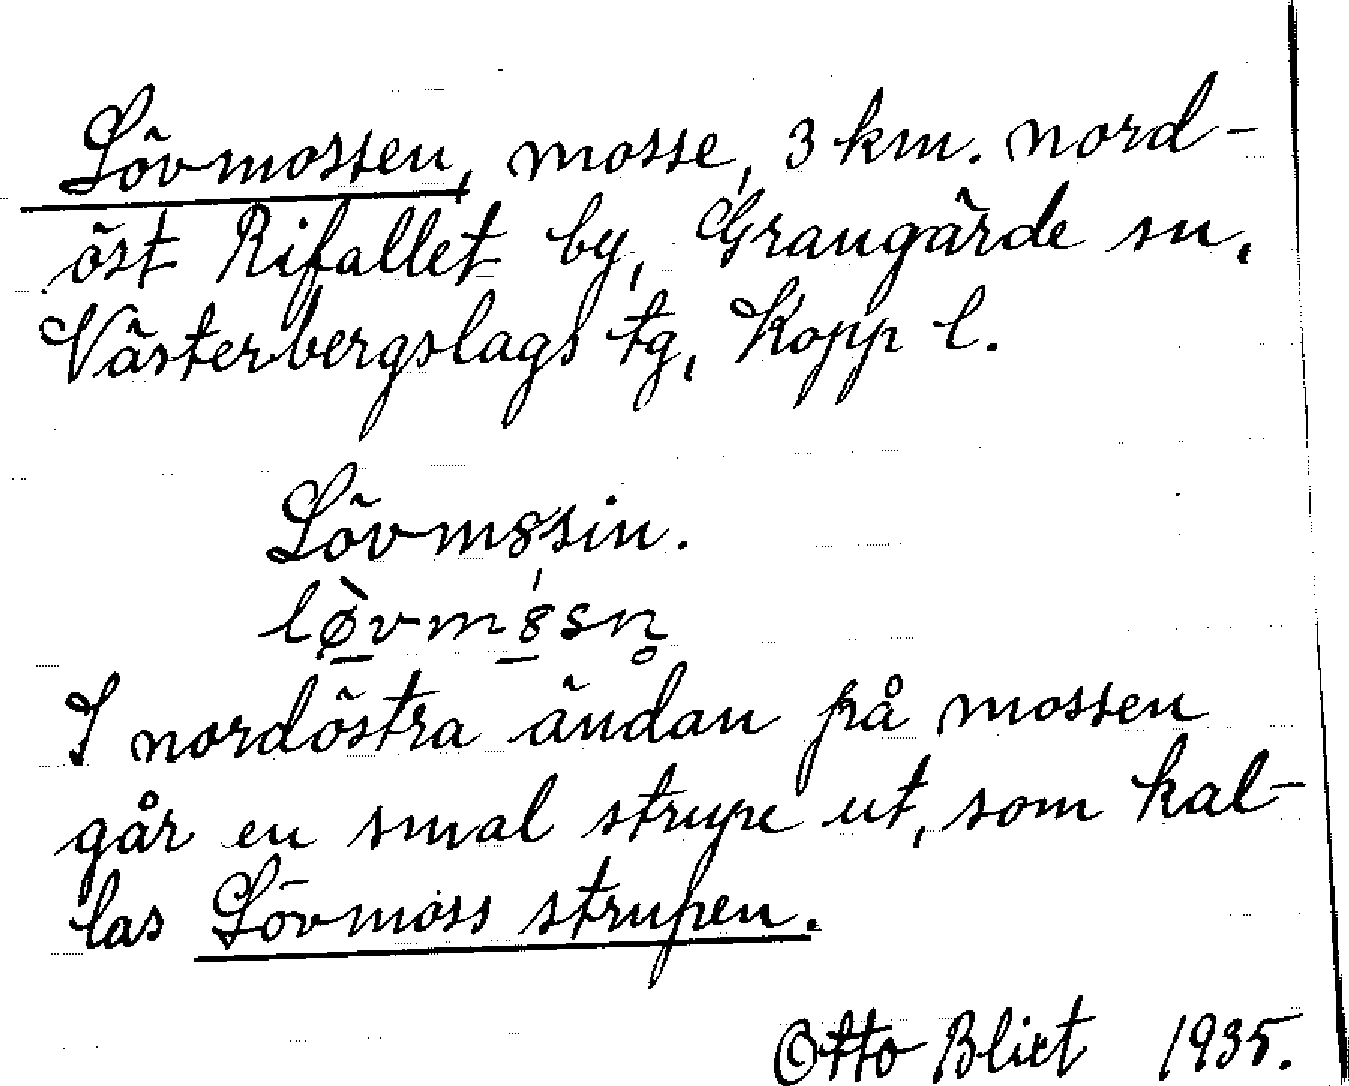 Lövmossen, mosse, 3 km. nord-
öst Rifallet by, Grangärde sn,
Västerbergslags tg, Kopp l.
Lövmȣsin.
lø̀vmȣsn̥
I nordöstra ändan på mossen
går en smal strupe ut, som kal-
las Lövmoss strupen.
Otto Blixt 1935.